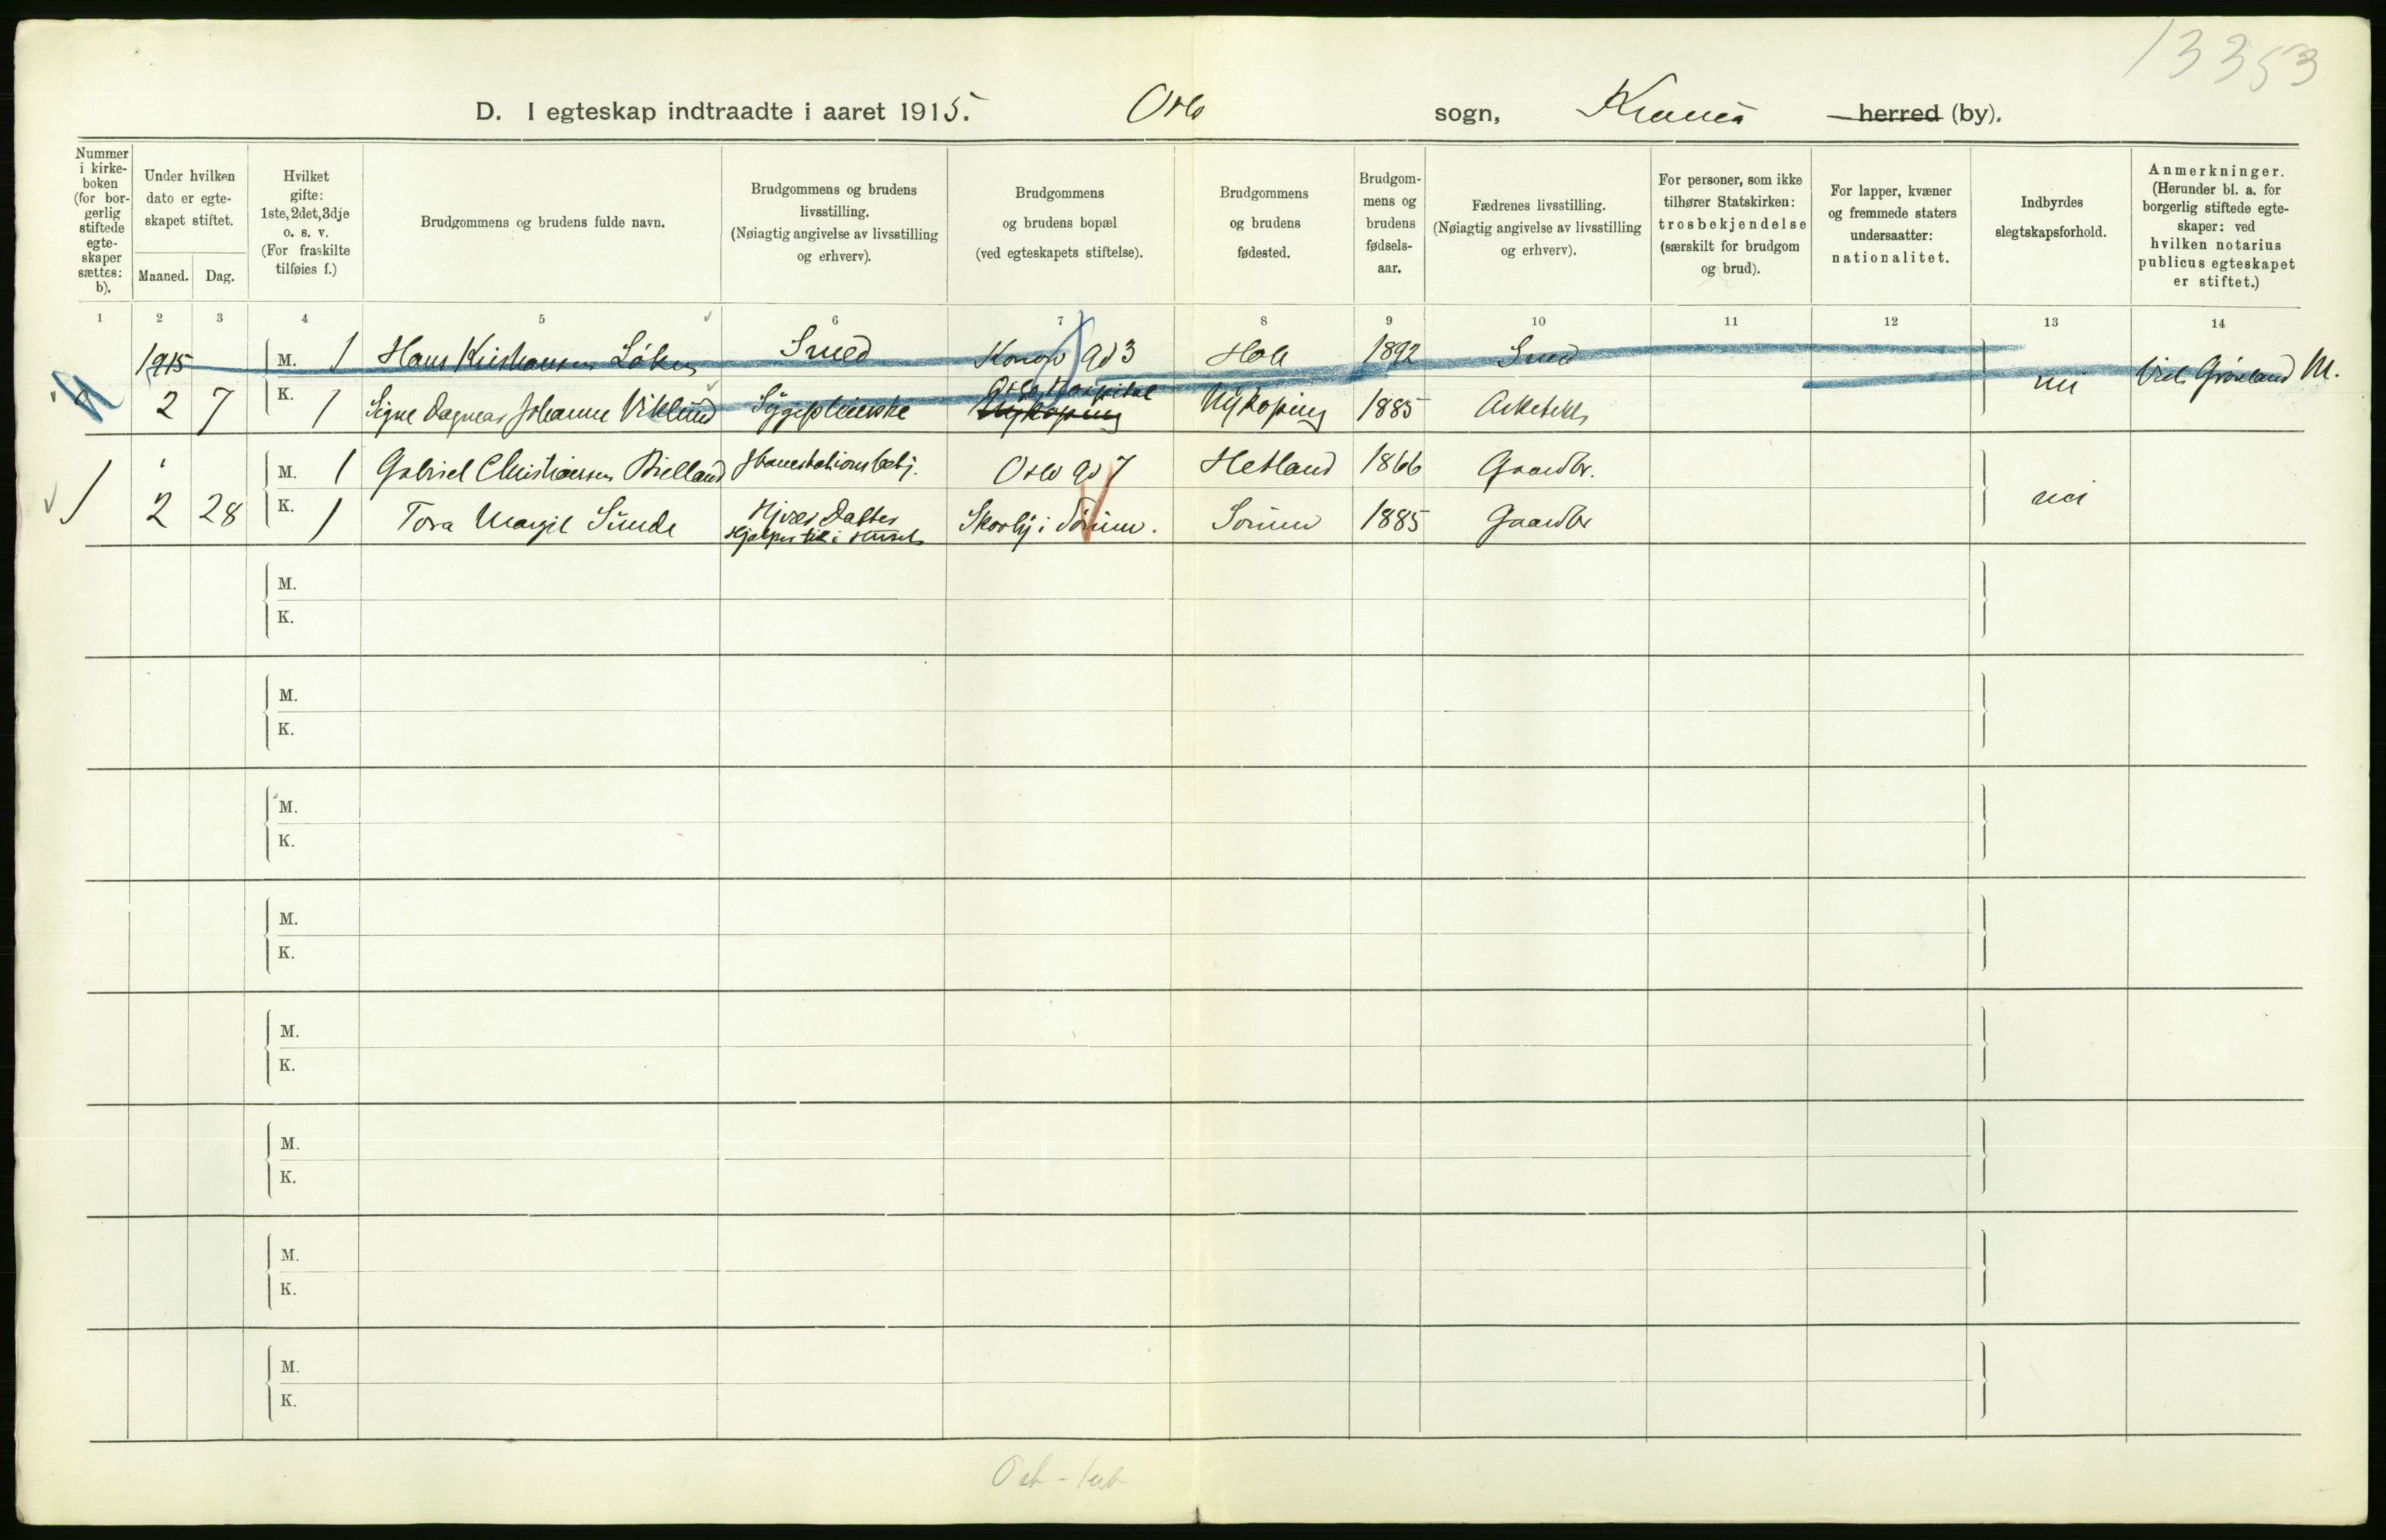 13353
D. I egteskap indtraadte i aaret 1915. Oslo sogn, herred (by).
Nummer i kirkeboken (for borgerlig stiftede egteskaper sættes: b).
Under hvilken dato er egteskapet stiftet.
Maaned. Dag.
Hvilket gifte: 1ste, 2det, 3dje o. s. v. (For fraskilte tilføies f.)
Brudgommens og brudens fulde navn.
Brudgommens og brudens livsstilling. (Nøiagtig angivelse av livsstilling og erhverv).
Brudgommens og brudens bopæl (ved egteskapets stiftelse).
Brudgommens og brudens fødested.
Brudgommens og brudens fødselsaar.
Fædrenes livsstilling. (Nøiagtig angivelse av livsstilling og erhverv).
For personer, som ikke tilhører Statskirken: trosbekjendelse (særskilt for brudgom og brud).
For lapper, kvæner og fremmede staters undersaatter: nationalitet.
Indbyrdes slegtskapsforhold.
Anmerkninger. (Herunder bl. a. for borgerlig stiftede egteskaper: ved hvilken notarius publicus egteskapet er stiftet.)
1 2 3 4 5 6 7 8 9 10 11 12 13 14
1915 M. 1 Hans Kristiansen Løken Smed Konow gd 3 Hole 1892 Smed
2 7 K. 1 Signe Dagmar Johanne Viklund Sygepleierske Oslo Hospital Nykøping Nykøping 1885 Arkitekt nei Viet i Grønland M.
M. 1 Gabriel Christiansen Bielland Oslo gd 7 Hetland 1866 Gaardbr.
1 2 28 K. 1 Tora Margit Sunde Hjvær. Datter Hjælper til i Huset Skovby i Sørum. Sørum 1885 Gaardbr nei
M.
K.
M.
K.
M.
K.
M.
K.
M.
K.
M.
K.
M.
K.
M.
K.